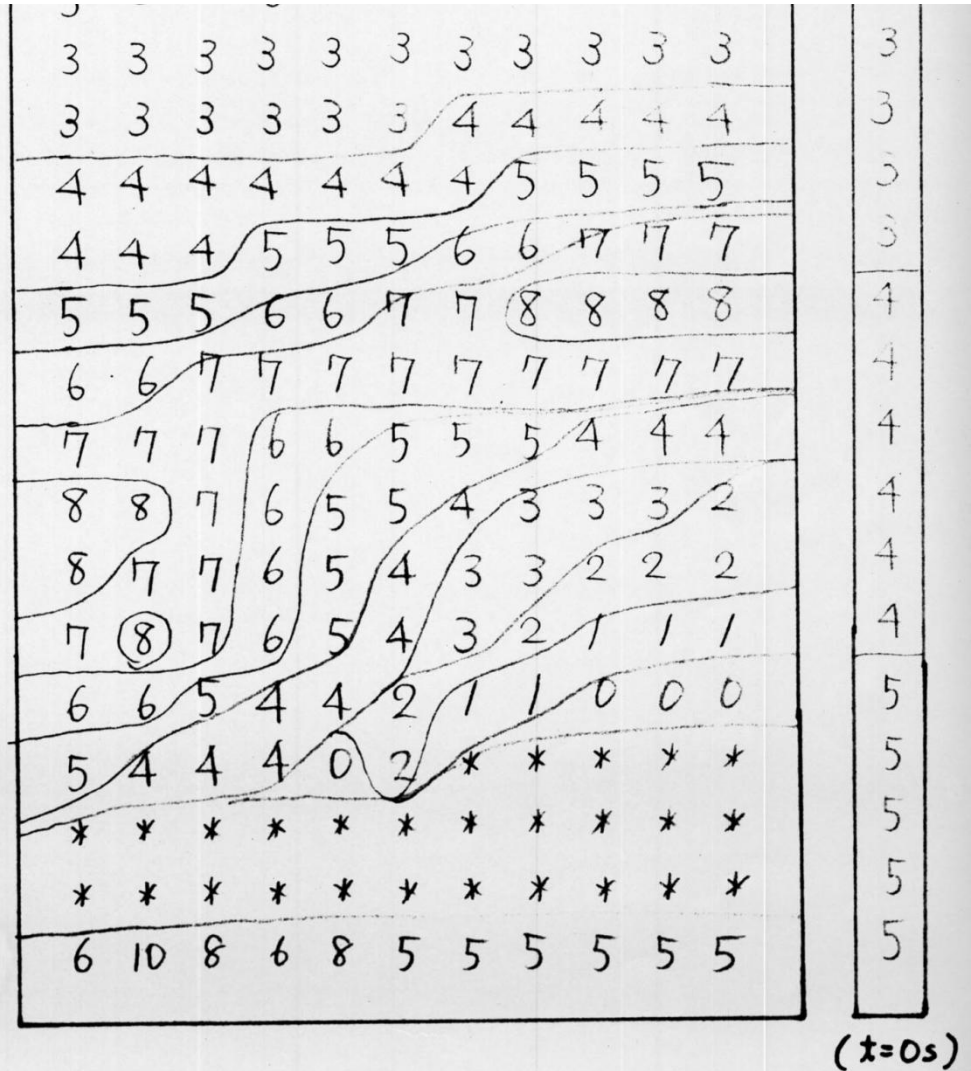 3 3 3 3 3 3 3 3 3 3 3 3
3 3 3 3 3 3 4 4 4 4 4 3
4 4 4 4 4 4 4 5 5 5 5 3
4 4 4 5 5 5 6 6 7 7 7 3
5 5 5 6 6 7 7 8 8 8 8 4
6 6 7 7 7 7 7 7 7 7 7 4
7 7 7 6 6 5 5 5 4 4 4 4
8 8 7 6 5 5 4 3 3 3 2 4
8 7 7 6 5 4 3 3 2 2 2 4
7 8 7 6 5 4 3 2 1 1 1 4
6 6 5 4 4 2 1 1 0 0 0 5
5 4 4 4 0 2 * * * * * 5
* * * * * * * * * * * 5
* * * * * * * * * * * 5
6 10 8 6 8 5 5 5 5 5 5 5
(t=0s)